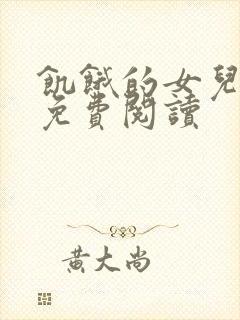 飢餓的女兒
免費閱讀
黃大尚